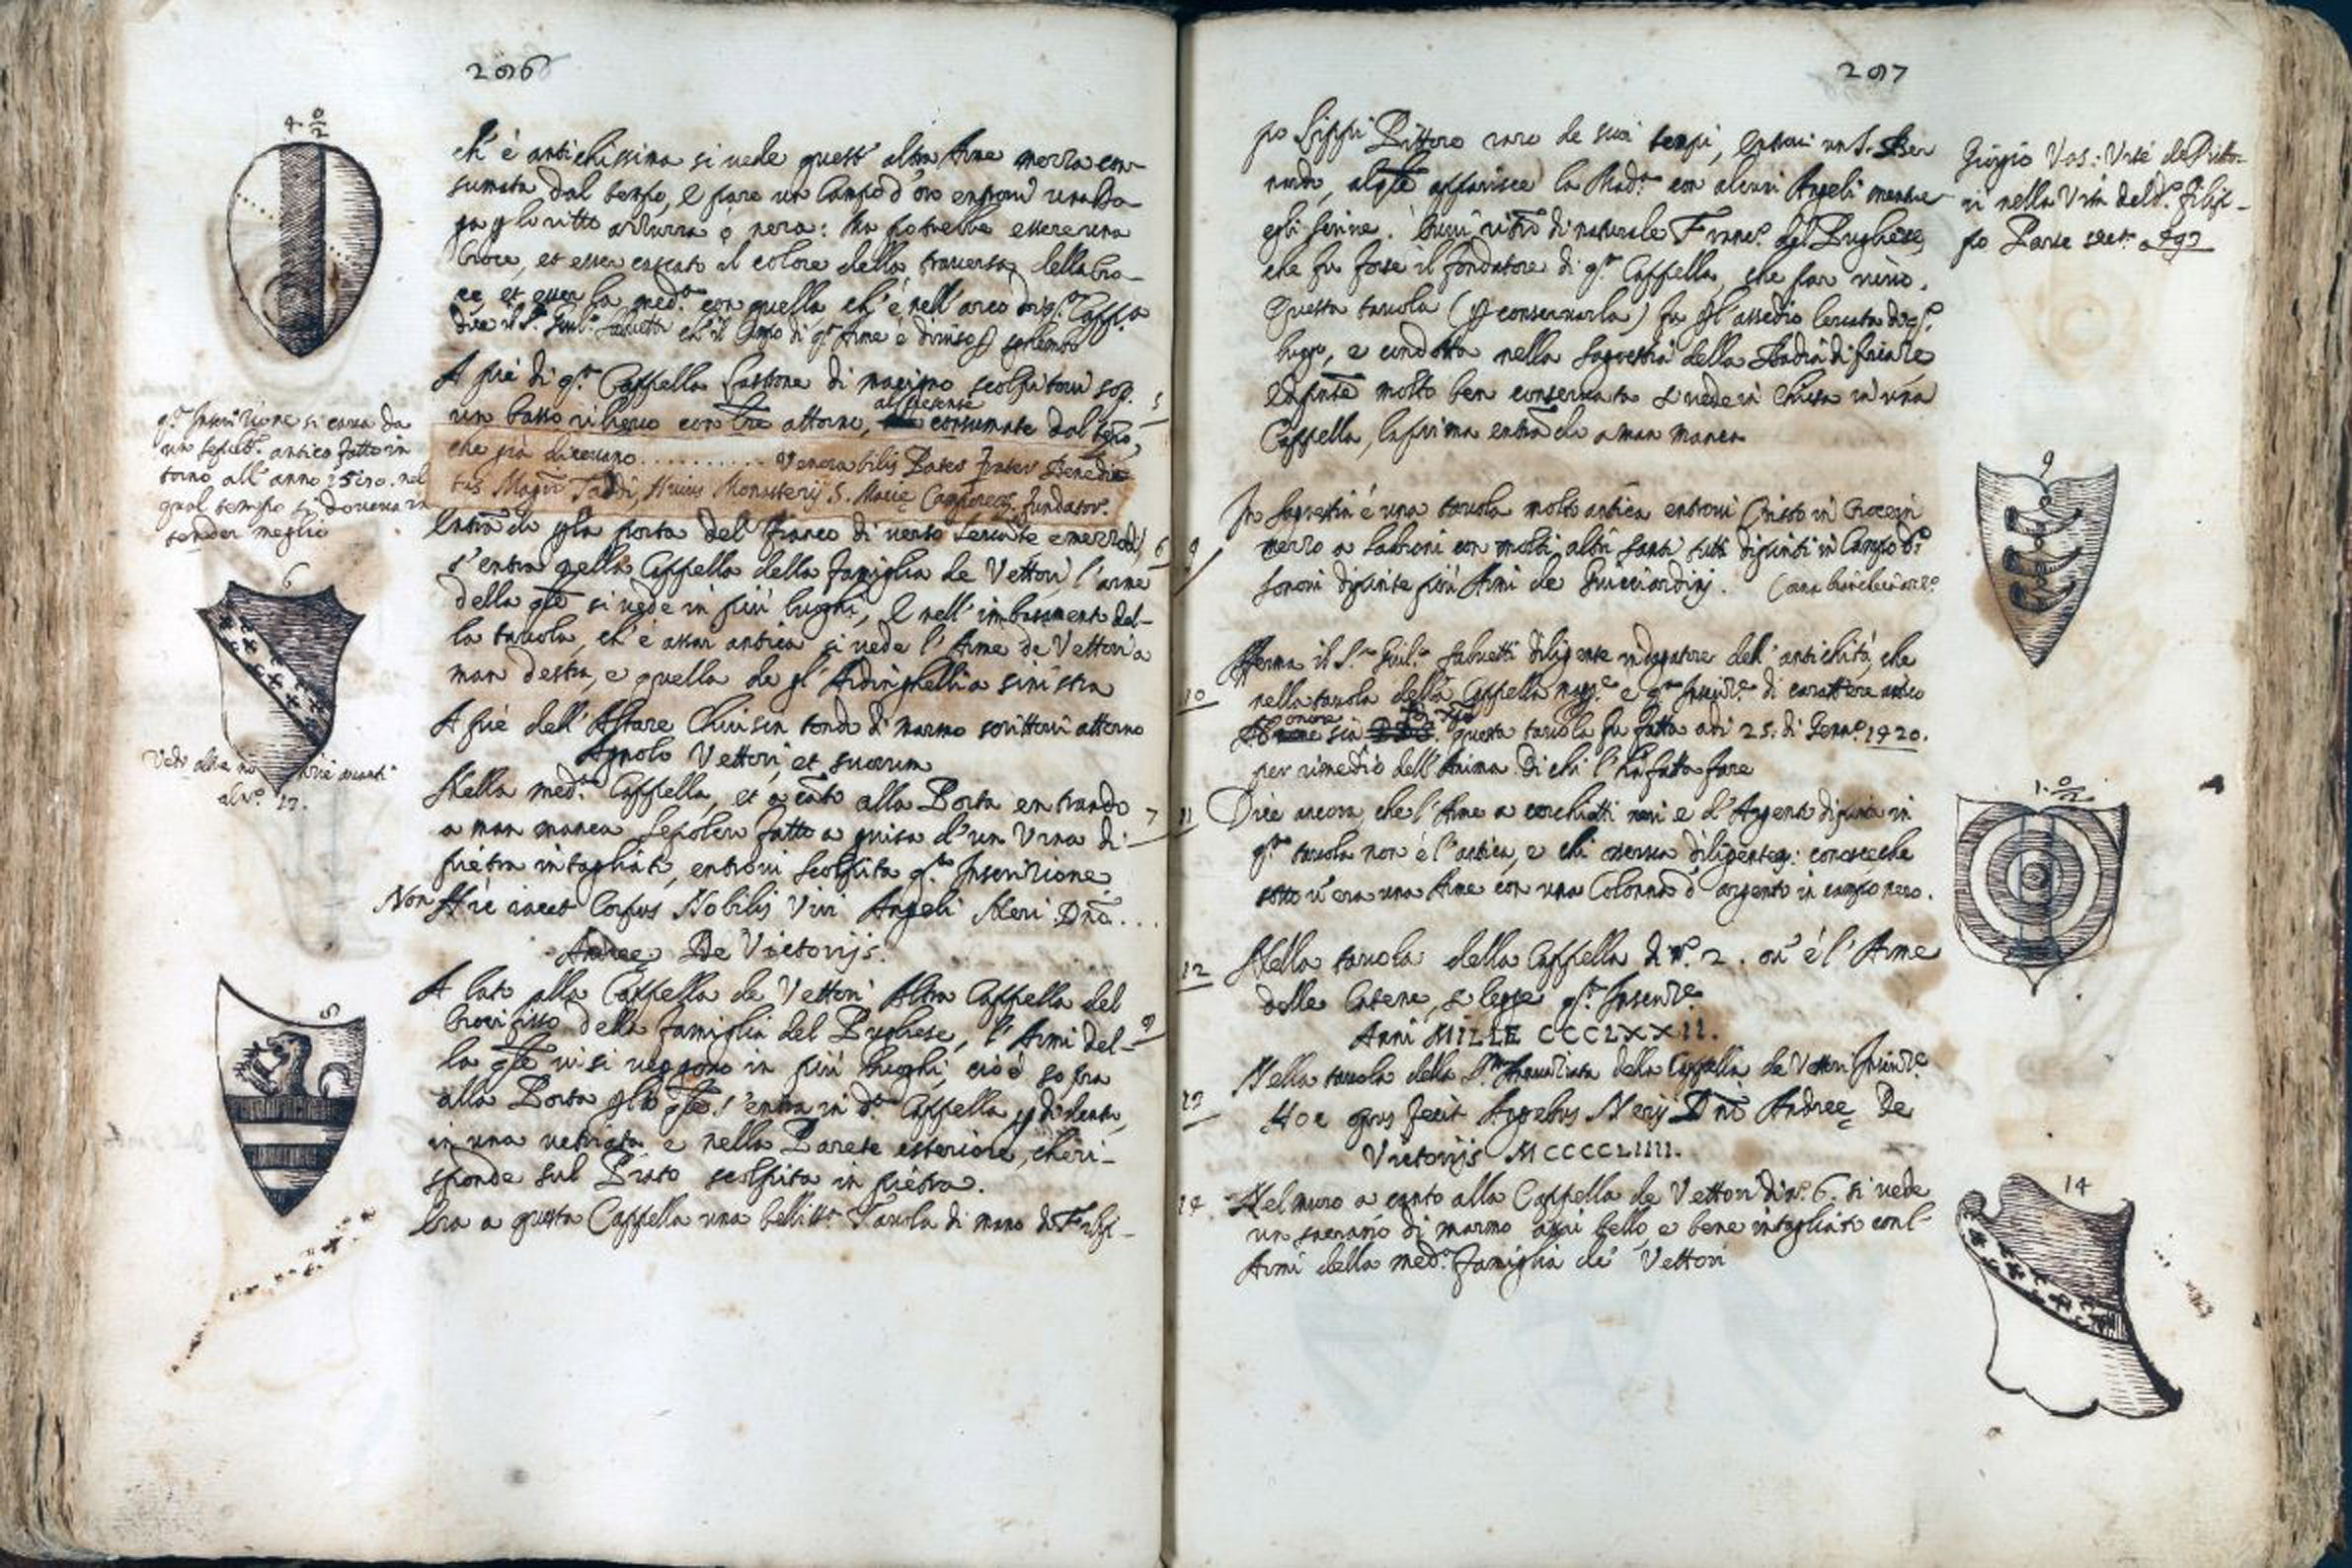 296
4
ch' è antichissima si vede quest' altra Arme mezza con-
sumata dal tempo, e pare un Campo d'oro entrovi una Do-
ga p lo ritto azzurra ò nera: Ma potrebbe essere una
Croce, et esser cascato il colore della traversa della Cro-
ce, et esser la med.ª con quella ch' è nell' arco di q.ª Capp.ª
dice il S.r Giul.º Salvetti ch' il Campo di q.ª Arme è diviso
A piè di q.ta Cappella Lastrone di macigno scolpitovi sop.
un basso rilievo con lre attorno, al presente consumate dal tpo,
che già dicevano .......... Venerabilis Pater Frater Benedic
tus Magri Taddi, Huius Monasterij S. Marie Camporens. fundator.
5
q.ta Inscrizione si cava da
un sepult. antico fatto in
torno all' anno 1500. nel
qual tempo si doveva in
tender meglio
Entrando p la porta del fianco di verso Levante e mezzodì
s'entra nella Cappella della famiglia de Vettori, l'arme
della qle si vede in più luoghi, e nell' imbasamento del-
la tavola, ch' è assai antica si vede l' Arme de Vettori a
man destra, e quella de gl' Ardinghelli a sinistra
6
6
A piè dell' Altare Chiusin tondo di marmo scrittovi attorno
Agnolo Vettori, et suorum
Vedi avanti
al n.º 13.
Nella med.ª Cappella, et a cāto alla Porta entrando
a man manca Sepolcro fatto a guisa d'un Urna di
pietra intagliata, entrovi scolpita q.ta Inscrizione
7
Non Hic iacet Corpus Nobilis Viri Angeli Neri Dnī....
Andree De Victorijs.
A lato alla Cappella de Vettori Altra Cappella del
Crocifisso della famiglia del Pugliese, l' Armi del-
la qle vi si veggono in più luoghi, cioè sopra
alla Porta p la qle s'entra in d.ª Cappella p di dentro,
in una vetriata e nella Parete esteriore, che ri-
sponde sul Prato scolpita in pietra.
Era a questa Cappella una belliss.ª Tavola di mano di Filip-
297
po Lippi Pittore raro de suoi tempi, entrovi un S. Ber
nardo, al qle apparisce la Mad.ª con alcuni Angeli mentre
egli scrive. Èvvi ritrº di naturale Franc.º del Pugliese,
che fu forse il fondatore di q.ª Cappella, che par vivo.
Questa tavola (p conservarla) fu p l'assedio levata di q.º
luogo, e condotta nella Sagrestia della Badia di firenze
e al presente molto ben conservata si vede in Chiesa in una
Cappella, la prima entrādo a man manca
Giorgio Vas: Vite de Pitto-
ri nella Vita del d.º Filip-
po Parte
9
In Sagrestia è una tavola molto antica entrovi Cristo in Croce in
mezzo a Ladroni con molti altri Santi tutti dipinti in Campo d'o
sonovi dipinte più Armi de Guicciardinj.
9
Afferma il S.re Giul.º Salvetti diligente indagatore dell' antichità, che
nella tavola della Cappella magg.e è q.ta Inscriz.e di carattere antico
onore sia questa tavola fu fatta adì 25. di Genn.º 1420.
per rimedio dell' Anima di chi l' hà fatta fare
10
11 Dice ancora, che l' Arme a cerchietti neri e d' Argento dipinta in
q.ta tavola non è l'antica, e chi osserva diligentem: conosce che
sotto v'era una Arme con una Colonna d' argento in campo nero.
12 Nella tavola della Cappella di n.º 2. ov' è l' Arme
delle Catene, si legge q.ta Inscriz.e
Anni MILLE CCCLXXII.
13 Nella tavola della S.ma Annunziata della Cappella de Vettori Inscriz.e
Hoc opus fecit Angelus Nerij Dnī Andree De
Victorijs MCCCCLIIII.
14 Nel muro a canto alla Cappella de Vettori di n.º 6. si vede
un sacrario di marmo assai bello e bene intagliato con l'
Armi della med.ª famiglia de' Vettori
14